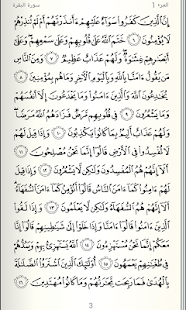 الجزء 1
سورة البقرة
إِنَّ ٱلَّذِينَ كَفَرُوا۟ سَوَآءٌ عَلَيْهِمْ ءَأَنذَرْتَهُمْ أَمْ لَمْ تُنذِرْهُمْ
لَا يُؤْمِنُونَ ٦ خَتَمَ ٱللَّهُ عَلَىٰ قُلُوبِهِمْ وَعَلَىٰ سَمْعِهِمْ ۖ وَعَلَىٰٓ
أَبْصَٰرِهِمْ غِشَٰوَةٌ ۖ وَلَهُمْ عَذَابٌ عَظِيمٌ ٧ وَمِنَ ٱلنَّاسِ
مَن يَقُولُ ءَامَنَّا بِٱللَّهِ وَبِٱلْيَوْمِ ٱلْـَٔاخِرِ وَمَا هُم بِمُؤْمِنِينَ ٨
يُخَٰدِعُونَ ٱللَّهَ وَٱلَّذِينَ ءَامَنُوا۟ وَمَا يَخْدَعُونَ إِلَّآ أَنفُسَهُمْ
وَمَا يَشْعُرُونَ ٩ فِى قُلُوبِهِم مَّرَضٌ فَزَادَهُمُ ٱللَّهُ مَرَضًا ۖ
وَلَهُمْ عَذَابٌ أَلِيمٌۢ بِمَا كَانُوا۟ يَكْذِبُونَ ١٠ وَإِذَا قِيلَ لَهُمْ
لَا تُفْسِدُوا۟ فِى ٱلْأَرْضِ قَالُوٓا۟ إِنَّمَا نَحْنُ مُصْلِحُونَ ١١
أَلَآ إِنَّهُمْ هُمُ ٱلْمُفْسِدُونَ وَلَٰكِن لَّا يَشْعُرُونَ ١٢ وَإِذَا قِيلَ
لَهُمْ ءَامِنُوا۟ كَمَآ ءَامَنَ ٱلنَّاسُ قَالُوٓا۟ أَنُؤْمِنُ كَمَآ ءَامَنَ ٱلسُّفَهَآءُ ۗ
أَلَآ إِنَّهُمْ هُمُ ٱلسُّفَهَآءُ وَلَٰكِن لَّا يَعْلَمُونَ ١٣ وَإِذَا لَقُوا۟
ٱلَّذِينَ ءَامَنُوا۟ قَالُوٓا۟ ءَامَنَّا وَإِذَا خَلَوْا۟ إِلَىٰ شَيَٰطِينِهِمْ قَالُوٓا۟ إِنَّا
مَعَكُمْ إِنَّمَا نَحْنُ مُسْتَهْزِءُونَ ١٤ ٱللَّهُ يَسْتَهْزِئُ بِهِمْ وَيَمُدُّهُمْ
فِى طُغْيَٰنِهِمْ يَعْمَهُونَ ١٥ أُو۟لَٰٓئِكَ ٱلَّذِينَ ٱشْتَرَوُا۟ ٱلضَّلَٰلَةَ
بِٱلْهُدَىٰ فَمَا رَبِحَت تِّجَٰرَتُهُمْ وَمَا كَانُوا۟ مُهْتَدِينَ ١٦
3